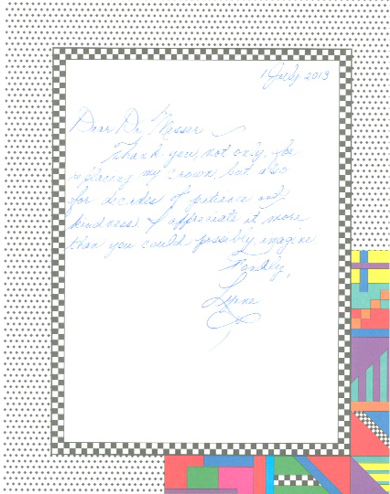 1 July 2013
Dear Dr.
Thank you not only for
replacing my crown but also
for decades of patience and
kindness. I appreciate it more
than you could possibly imagine.
Fondly,